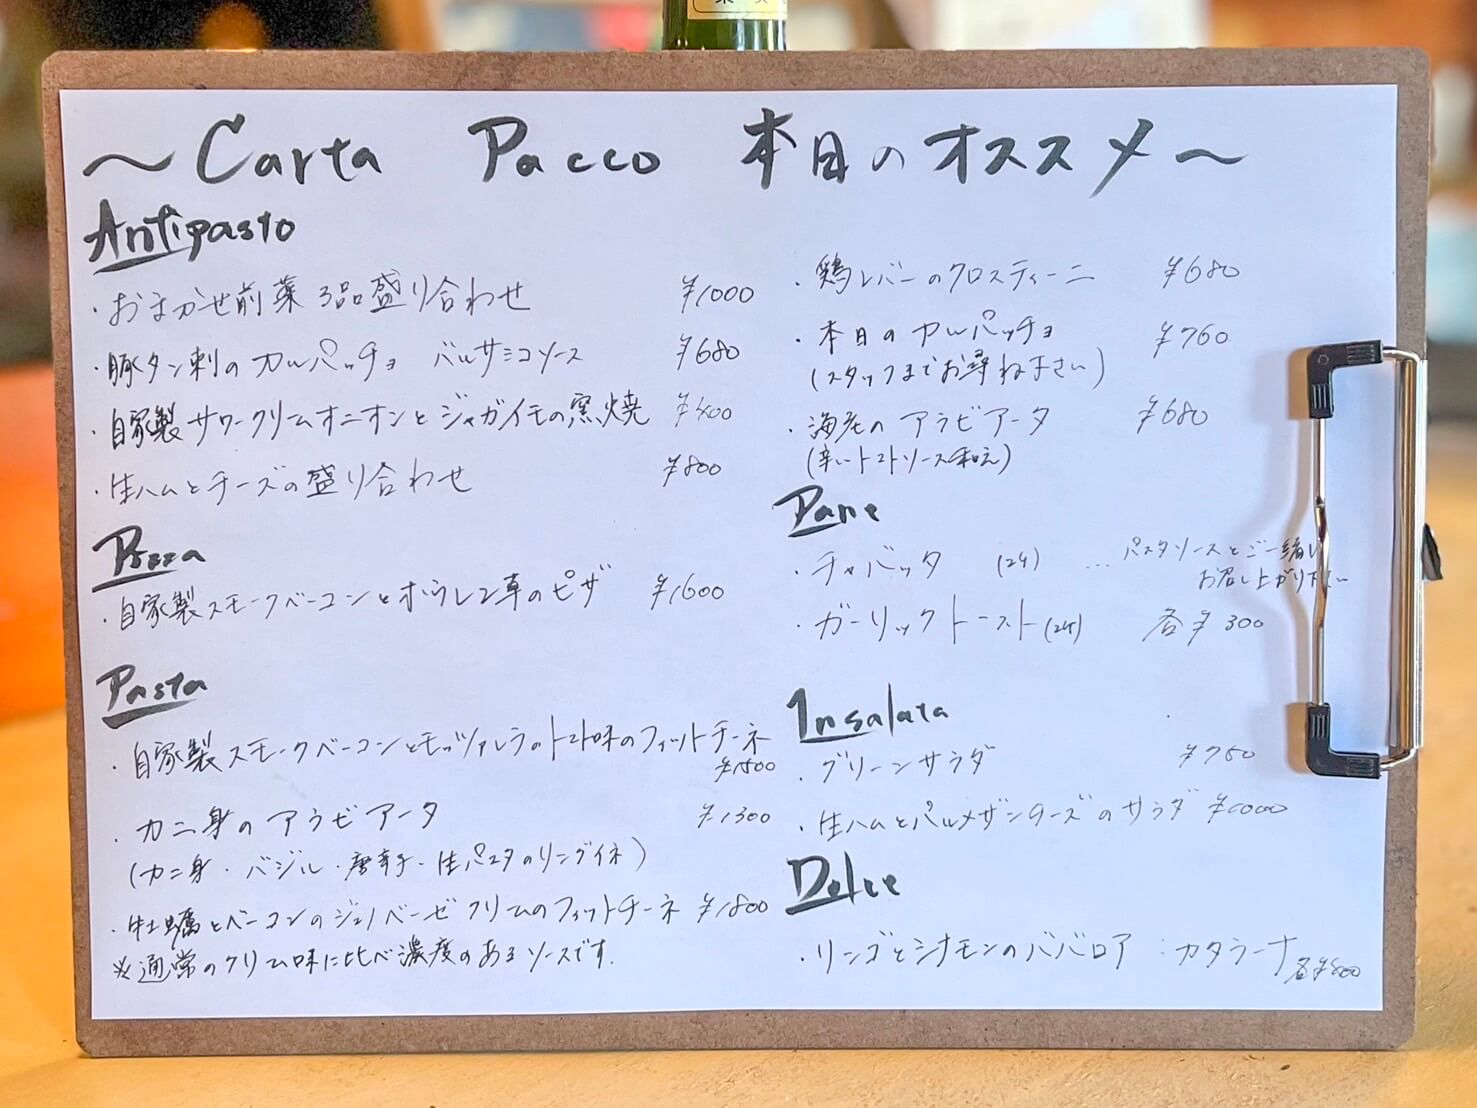 ～Carta Pacco 本日のオススメ～
Antipasto
・おまかせ前菜3品盛り合わせ ¥1000
・豚タン刺のカルパッチョ バルサミコソース ¥680
・自家製サワークリームオニオンとジャガイモの窯焼 ¥800
・生ハムとチーズの盛り合わせ ¥800
Pizza
・自家製スモークベーコンとホウレン草のピザ ¥1600
Pasta
・自家製スモークベーコンとモッツァレラのトマト味のフィットチーネ
¥1500
・カニ身のアラビアータ ¥1300
(カニ身・バジル・唐辛子・生パスタのリングイネ)
・牡蠣とベーコンのジェノベーゼクリームのフィットチーネ ¥1800
※通常のクリーム味に比べ濃度のあるソースです.
・鶏レバーのクロスティーニ ¥680
・本日のカルパッチョ ¥760
(スタッフまでお尋ね下さい)
・海老のアラビアータ ¥680
(辛いトマトソース和え)
Pane
・チャバッタ (2ヶ) …パスタソースとご一緒に
お召し上がり下さい
・ガーリックトースト(2ヶ) 各¥300
Insalata
・グリーンサラダ ¥750
・生ハムとパルメザンチーズのサラダ ¥1000
Dolce
・リンゴとシナモンのババロア ・カタラーナ